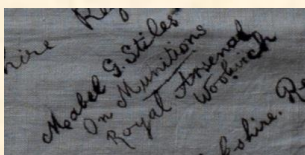 hire
Mabel G. Stiles
On Munitions
Royal Arsenal
Woolwich
kshire.